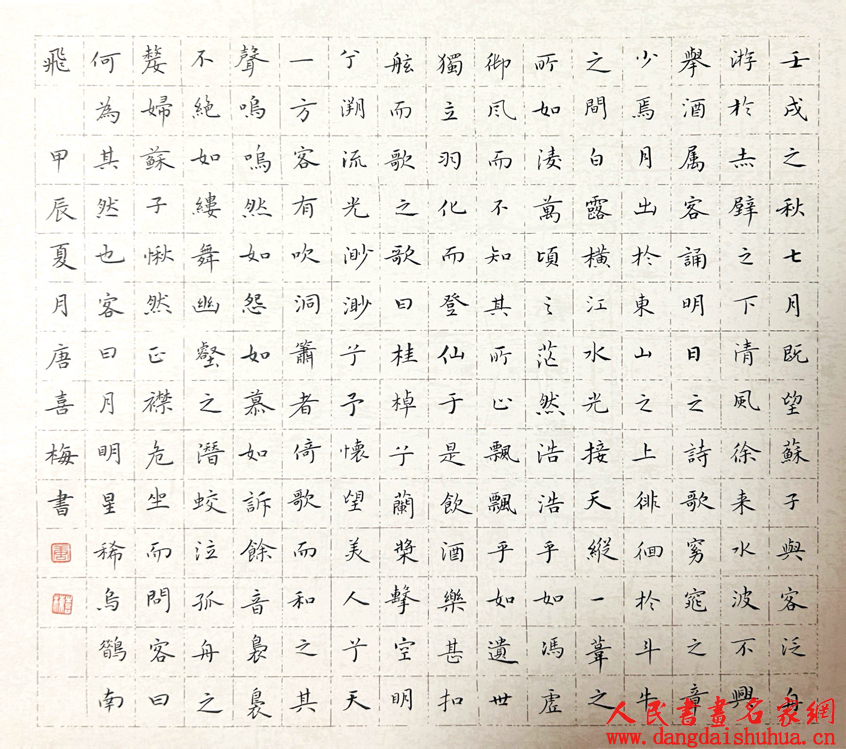 壬戌之秋七月既望蘇子與客泛舟
游於赤壁之下清風徐来水波不興
舉酒属客誦明日之詩歌窈窕之章
少焉月出於東山之上徘徊於斗牛
之間白露橫江水光接天縱一葦之
所如淩萬頃之茫然浩浩乎如馮虛
御風而不知其所止飄飄乎如遺世
獨立羽化而登仙于是飲酒樂甚扣
舷而歌之歌曰桂棹兮蘭槳擊空明
兮溯流光渺渺兮予懷望美人兮天
一方客有吹洞簫者倚歌而和之其
聲嗚嗚然如怨如慕如訴餘音裊裊
不絕如縷舞幽壑之潛蛟泣孤舟之
嫠婦蘇子愀然正襟危坐而問客曰
何為其然也客曰月明星稀烏鵲南
飛 甲辰夏月唐喜梅書
人民書畫名家網
www.dangdaishuhua.cn